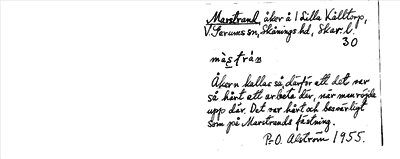 Marstrand, åker å 1 Lilla Kålltorp,
V. Gerums sn, Skånings hd, Skar. l.
30
màstrán
Åkern kallas så, därför att det var
så hårt att arbeta där, när man röjde
upp där. Det var hårt och besvärligt
som på Marstrands fästning.
P.O. Alström 1955.